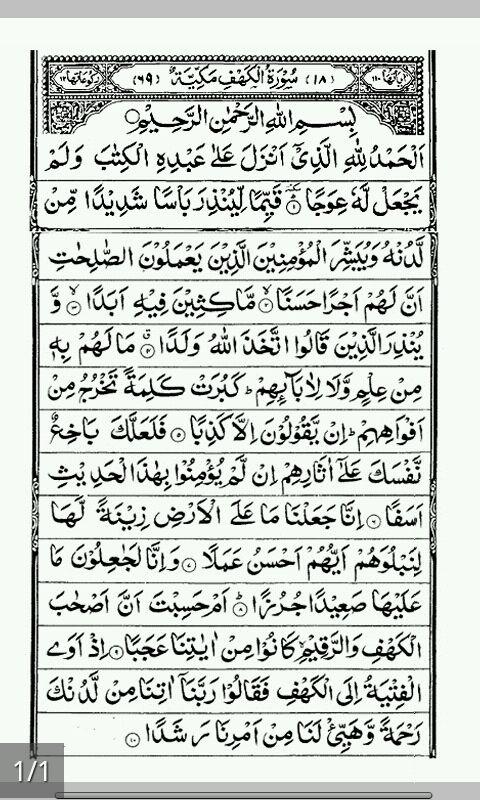 اٰیاتها ١١٠ (١٨) سُوْرَةُ الْكَهْفِ مَكِّيَّةٌ (٦٩) رکوعاتها ١٢
بِسْمِ اللّٰهِ الرَّحْمٰنِ الرَّحِيْمِ ○
اَلْحَمْدُ لِلّٰهِ الَّذِیْۤ اَنْزَلَ عَلٰى عَبْدِهِ الْكِتٰبَ وَ لَمْ
یَجْعَلْ لَّهٗ عِوَجًا ۜ ۱ قَیِّمًا لِّیُنْذِرَ بَاْسًا شَدِیْدًا مِّنْ
لَّدُنْهُ وَ یُبَشِّرَ الْمُؤْمِنِیْنَ الَّذِیْنَ یَعْمَلُوْنَ الصّٰلِحٰتِ
اَنَّ لَهُمْ اَجْرًا حَسَنًا ۙ ۲ مَّاكِثِیْنَ فِیْهِ اَبَدًا ۙ ۳ وَّ
یُنْذِرَ الَّذِیْنَ قَالُوا اتَّخَذَ اللّٰهُ وَلَدًا ۗ ۴ مَا لَهُمْ بِهٖ
مِنْ عِلْمٍ وَّ لَا لِاٰبَآىِٕهِمْ ؕ كَبُرَتْ كَلِمَةً تَخْرُجُ مِنْ
اَفْوَاهِهِمْ ؕ اِنْ یَّقُوْلُوْنَ اِلَّا كَذِبًا ۵ فَلَعَلَّكَ بَاخِعٌ
نَّفْسَكَ عَلٰۤى اٰثَارِهِمْ اِنْ لَّمْ یُؤْمِنُوْا بِهٰذَا الْحَدِیْثِ
اَسَفًا ۶ اِنَّا جَعَلْنَا مَا عَلَى الْاَرْضِ زِیْنَةً لَّهَا
لِنَبْلُوَهُمْ اَیُّهُمْ اَحْسَنُ عَمَلًا ۷ وَ اِنَّا لَجٰعِلُوْنَ مَا
عَلَیْهَا صَعِیْدًا جُرُزًا ؕ ۸ اَمْ حَسِبْتَ اَنَّ اَصْحٰبَ
الْكَهْفِ وَ الرَّقِیْمِ كَانُوْا مِنْ اٰیٰتِنَا عَجَبًا ۹ اِذْ اَوَى
الْفِتْیَةُ اِلَى الْكَهْفِ فَقَالُوْا رَبَّنَاۤ اٰتِنَا مِنْ لَّدُنْكَ
رَحْمَةً وَّ هَیِّئْ لَنَا مِنْ اَمْرِنَا رَشَدًا ۱۰
1/1